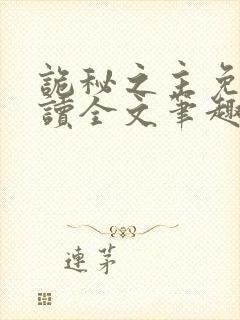 詭秘之主免
讀全文筆趣
連茅